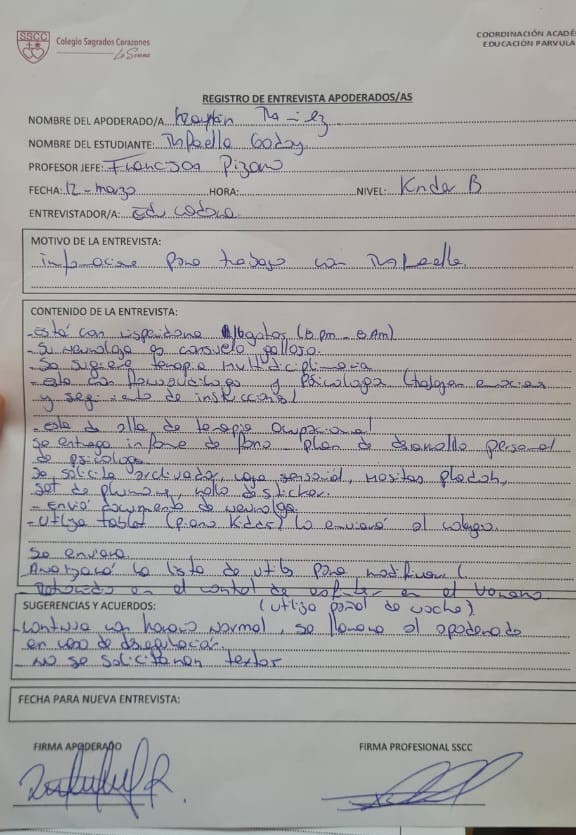 SSCC
Colegio Sagrados Corazones
La Serena
COORDINACIÓN ACADÉ
EDUCACIÓN PARVULA
REGISTRO DE ENTREVISTA APODERADOS/AS
NOMBRE DEL APODERADO/A:
NOMBRE DEL ESTUDIANTE: Godoy
PROFESOR JEFE: Francisca Pizarro
FECHA: 12 - marzo HORA: NIVEL: Kinder B
ENTREVISTADOR/A: Educadora
MOTIVO DE LA ENTREVISTA:
para trabajo con
CONTENIDO DE LA ENTREVISTA:
- Está con risperidona (8 pm - 8 Am)
- Su neurologa es consuelo
- Se sugiere terapia multidiciplinaria
- esta con fonoaudiologo y Psicologa
y seguimiento de instrucciones)
- esta de alta de terapia ocupacional
se entrega informe de fono, plan de desarrollo personal
de psicologa
Se solicita archivador, caja sensorial, masitas playdoh,
set de plumones, rollo de sticker.
- Envió documento de neurologa.
- Utiliza tablet lo enviará al colegio.
Se enviara
lista de utiles para modificar (
en el control de esfinter en el verano
SUGERENCIAS Y ACUERDOS: (utiliza pañal de noche)
- Continua con horario normal, se llamara al apoderado
en caso de desregulación.
- No se solicitaran textos
FECHA PARA NUEVA ENTREVISTA:
FIRMA APODERADO FIRMA PROFESIONAL SSCC